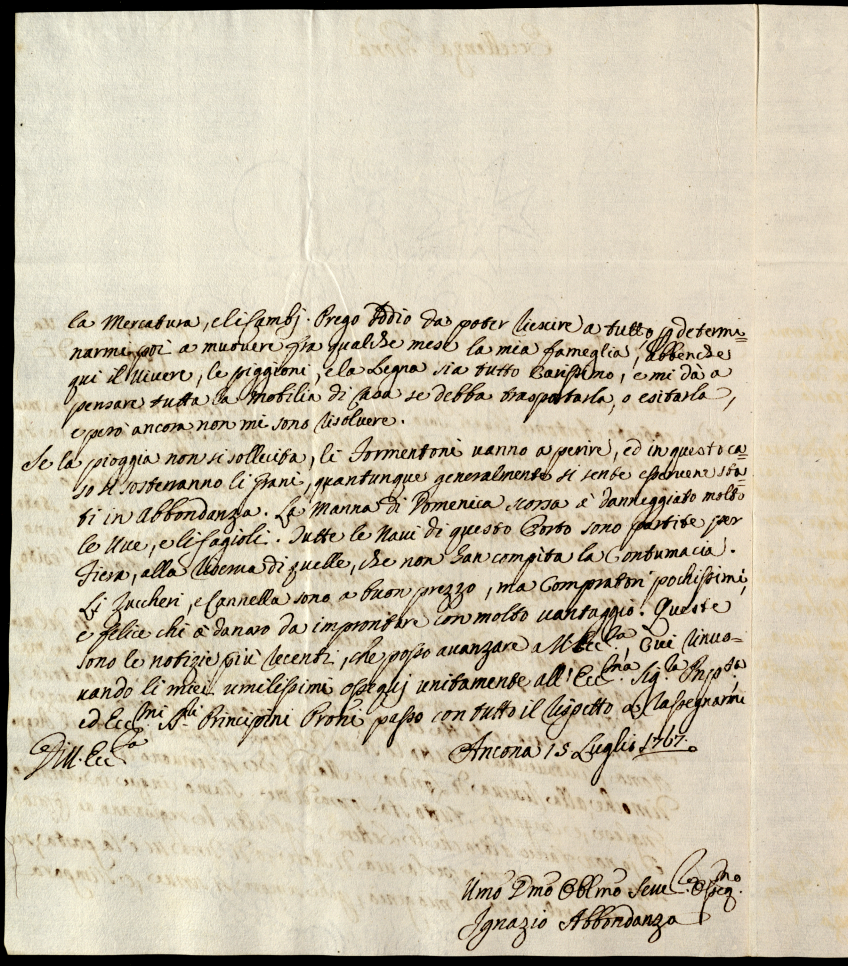 la Mercatura, e li Cambj. Prego Iddio da poter riescire a tutto, e determi=
narmi poi a muovere fra qualche mese la mia fameglia, abbenche
qui il vivere, le piggioni, e la Legna sia tutto Carissimo, e mi dà a
pensare tutta la Mobilia di Casa se debba trasportarla, o esitarla,
e però ancora non mi sono risolvere.
Se la pioggia non si sollecita, li Formentoni vanno a perire, ed in questo ca=
so si sosterranno li Grani, quantunque generalmente si sente esservene sta=
ti in Abbondanza. La Manna di Domenica scorsa à danneggiato molto
le Uve, e li fagioli. Tutte le Navi di questo Porto sono partite per
Fiera, alla riserva di quelle, che non han compita la Contumacia.
Li Zuccheri, e Cannella sono a buon prezzo, ma Compratori pochissimi,
e felice chi à danaro da improntare con molto vantaggio. Queste
sono le notizie più recenti, che posso avanzare a V. Ecc:za, Cui rinuo=
vando li miei umilissimi ossequj unitamente all' Ecc:ma Sig:ra Prnp:ssa
ed Ecc:mi SS:ri Principini Proñi passo con tutto il rispetto a rassegnarmi
Di V. Ecc:za
Ancona 15 Luglio 1767.
Umo Dmo Oblmo Serre Osseq:mo
Ignazio Abbondanza